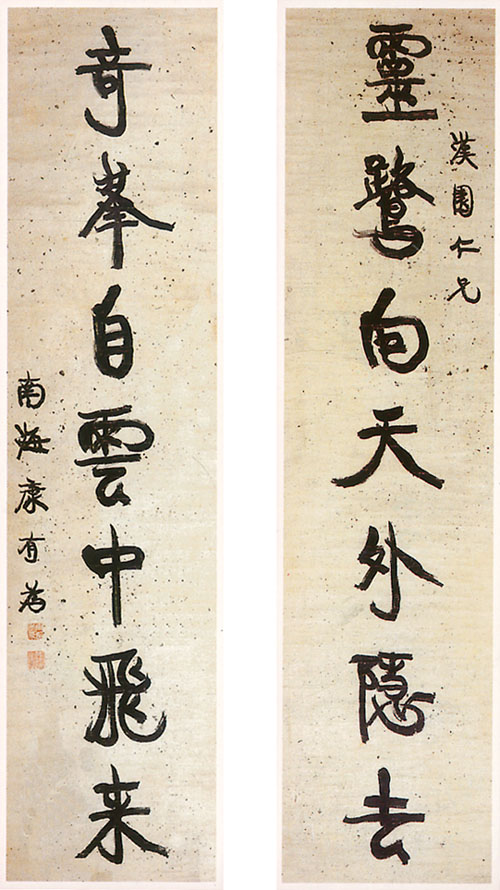 漢園仁兄
靈鷲向天外隱去
奇峯自雲中飛来
南海康有為